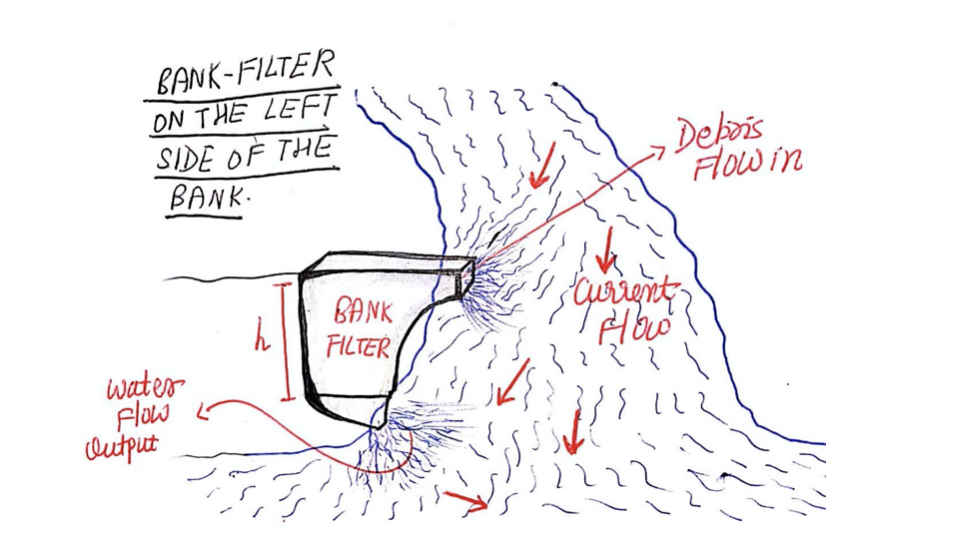 BANK-FILTER
ON THE LEFT
SIDE OF THE
BANK.
Debris
FLOW in
Current
FLOW
BANK
FILTER
h
Water
FLOW
Output